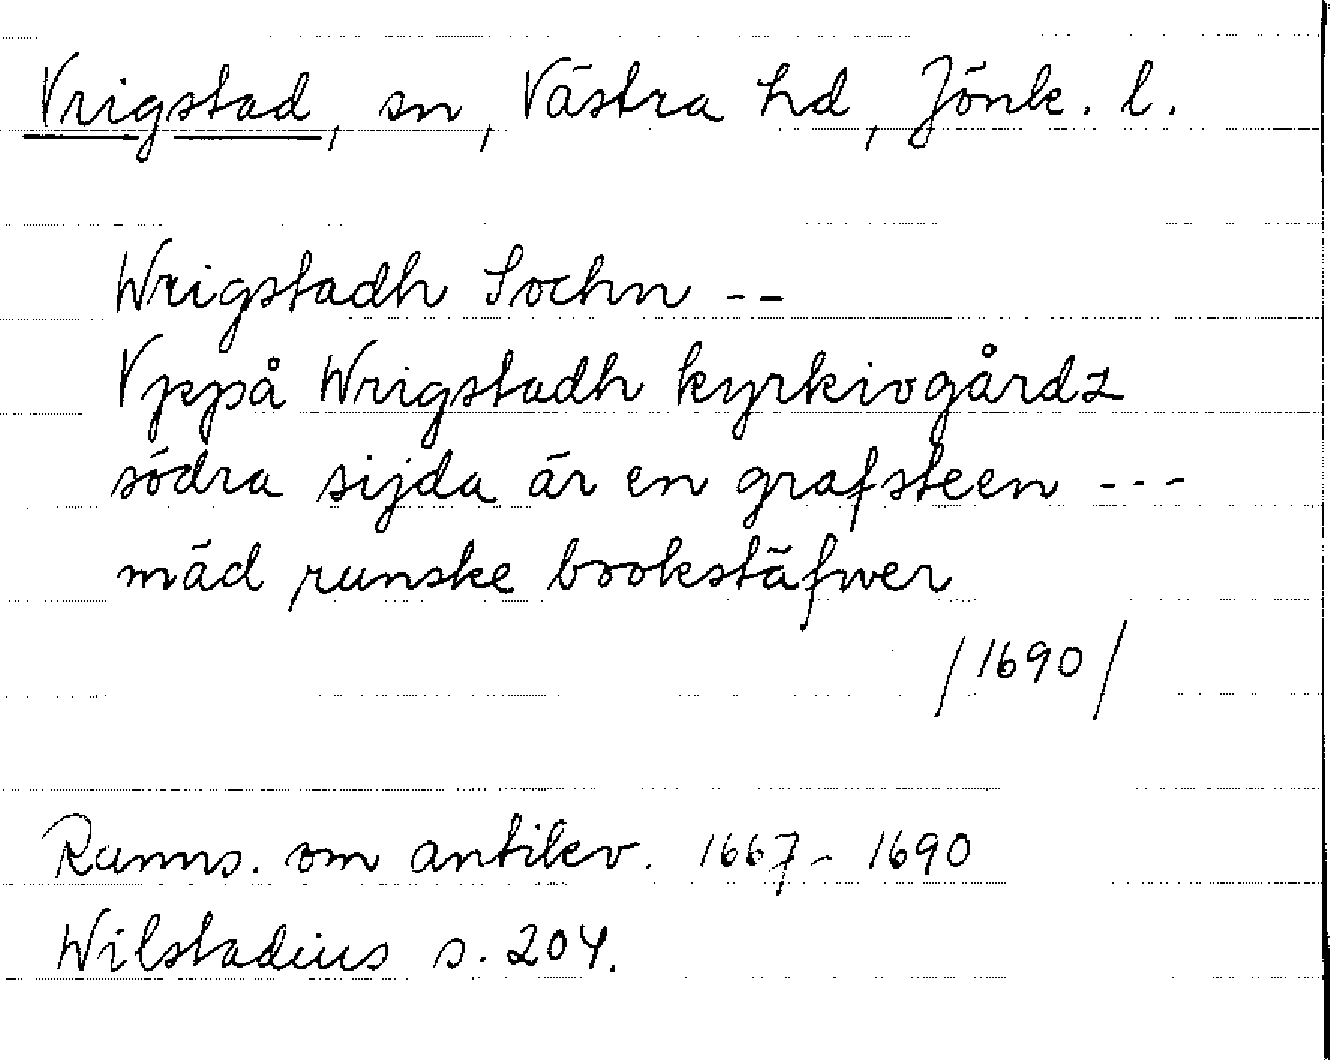 Vrigstad, sn, Västra hd, Jönk. l.
Wrigstadh Sochn --
Vppå Wrigstadh kyrkiogårdz
södra sijda är en grafsteen ---
mäd runske bookstäfwer
/1690/
Ranns. om antikv. 1667- 1690
Wilstadius s. 204.